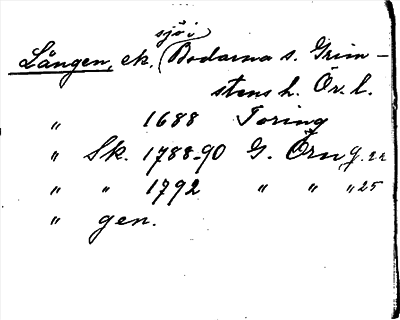 sjö i
Lången, ek. (Bodarna s. Grim-
stens h. Ör. l.
" 1688 Toring
" Sk. 1788-90 G. Örn g. 22
" " 1792 " " " 25
" gen.